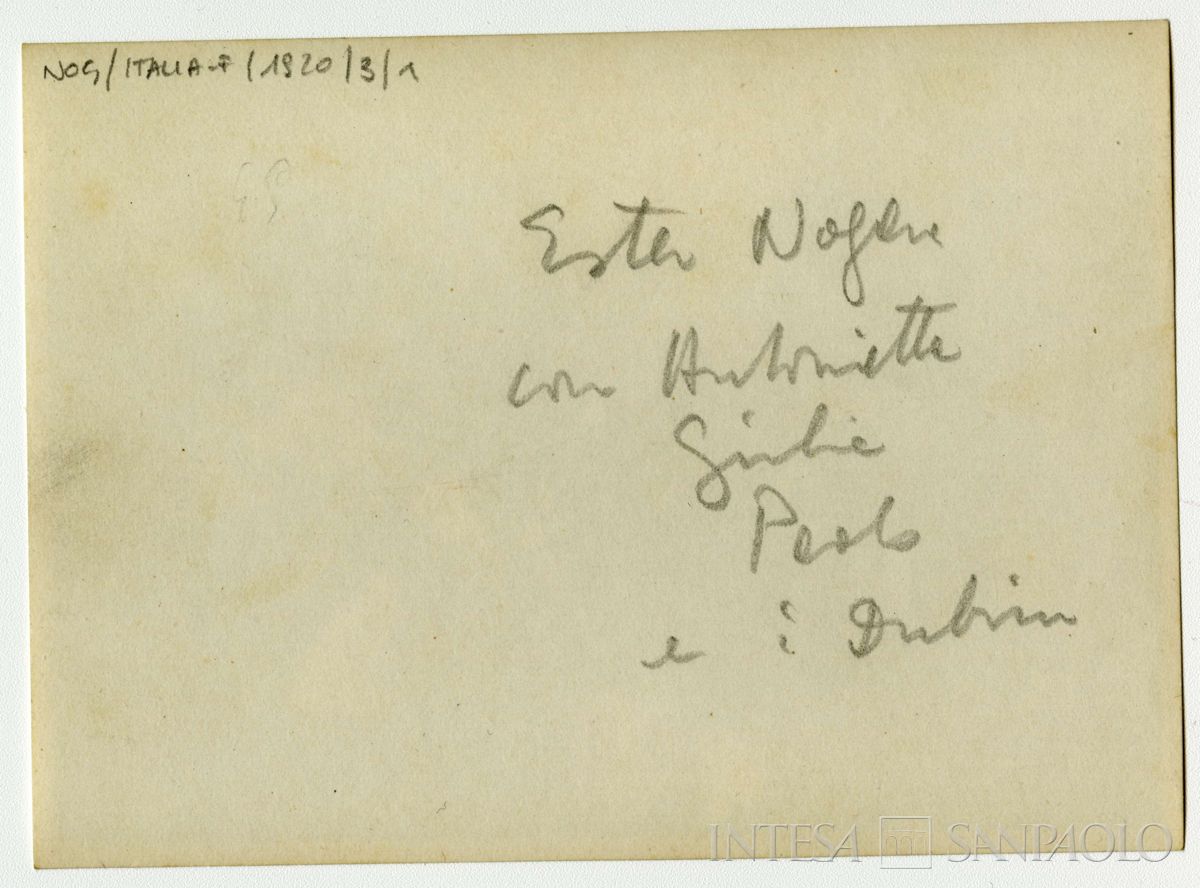 NOG/ITALIA-F/1920/3/1
Ester Nogara
con Antonietta
Giulia
Paolo
e i Dubini
INTESA SANPAOLO